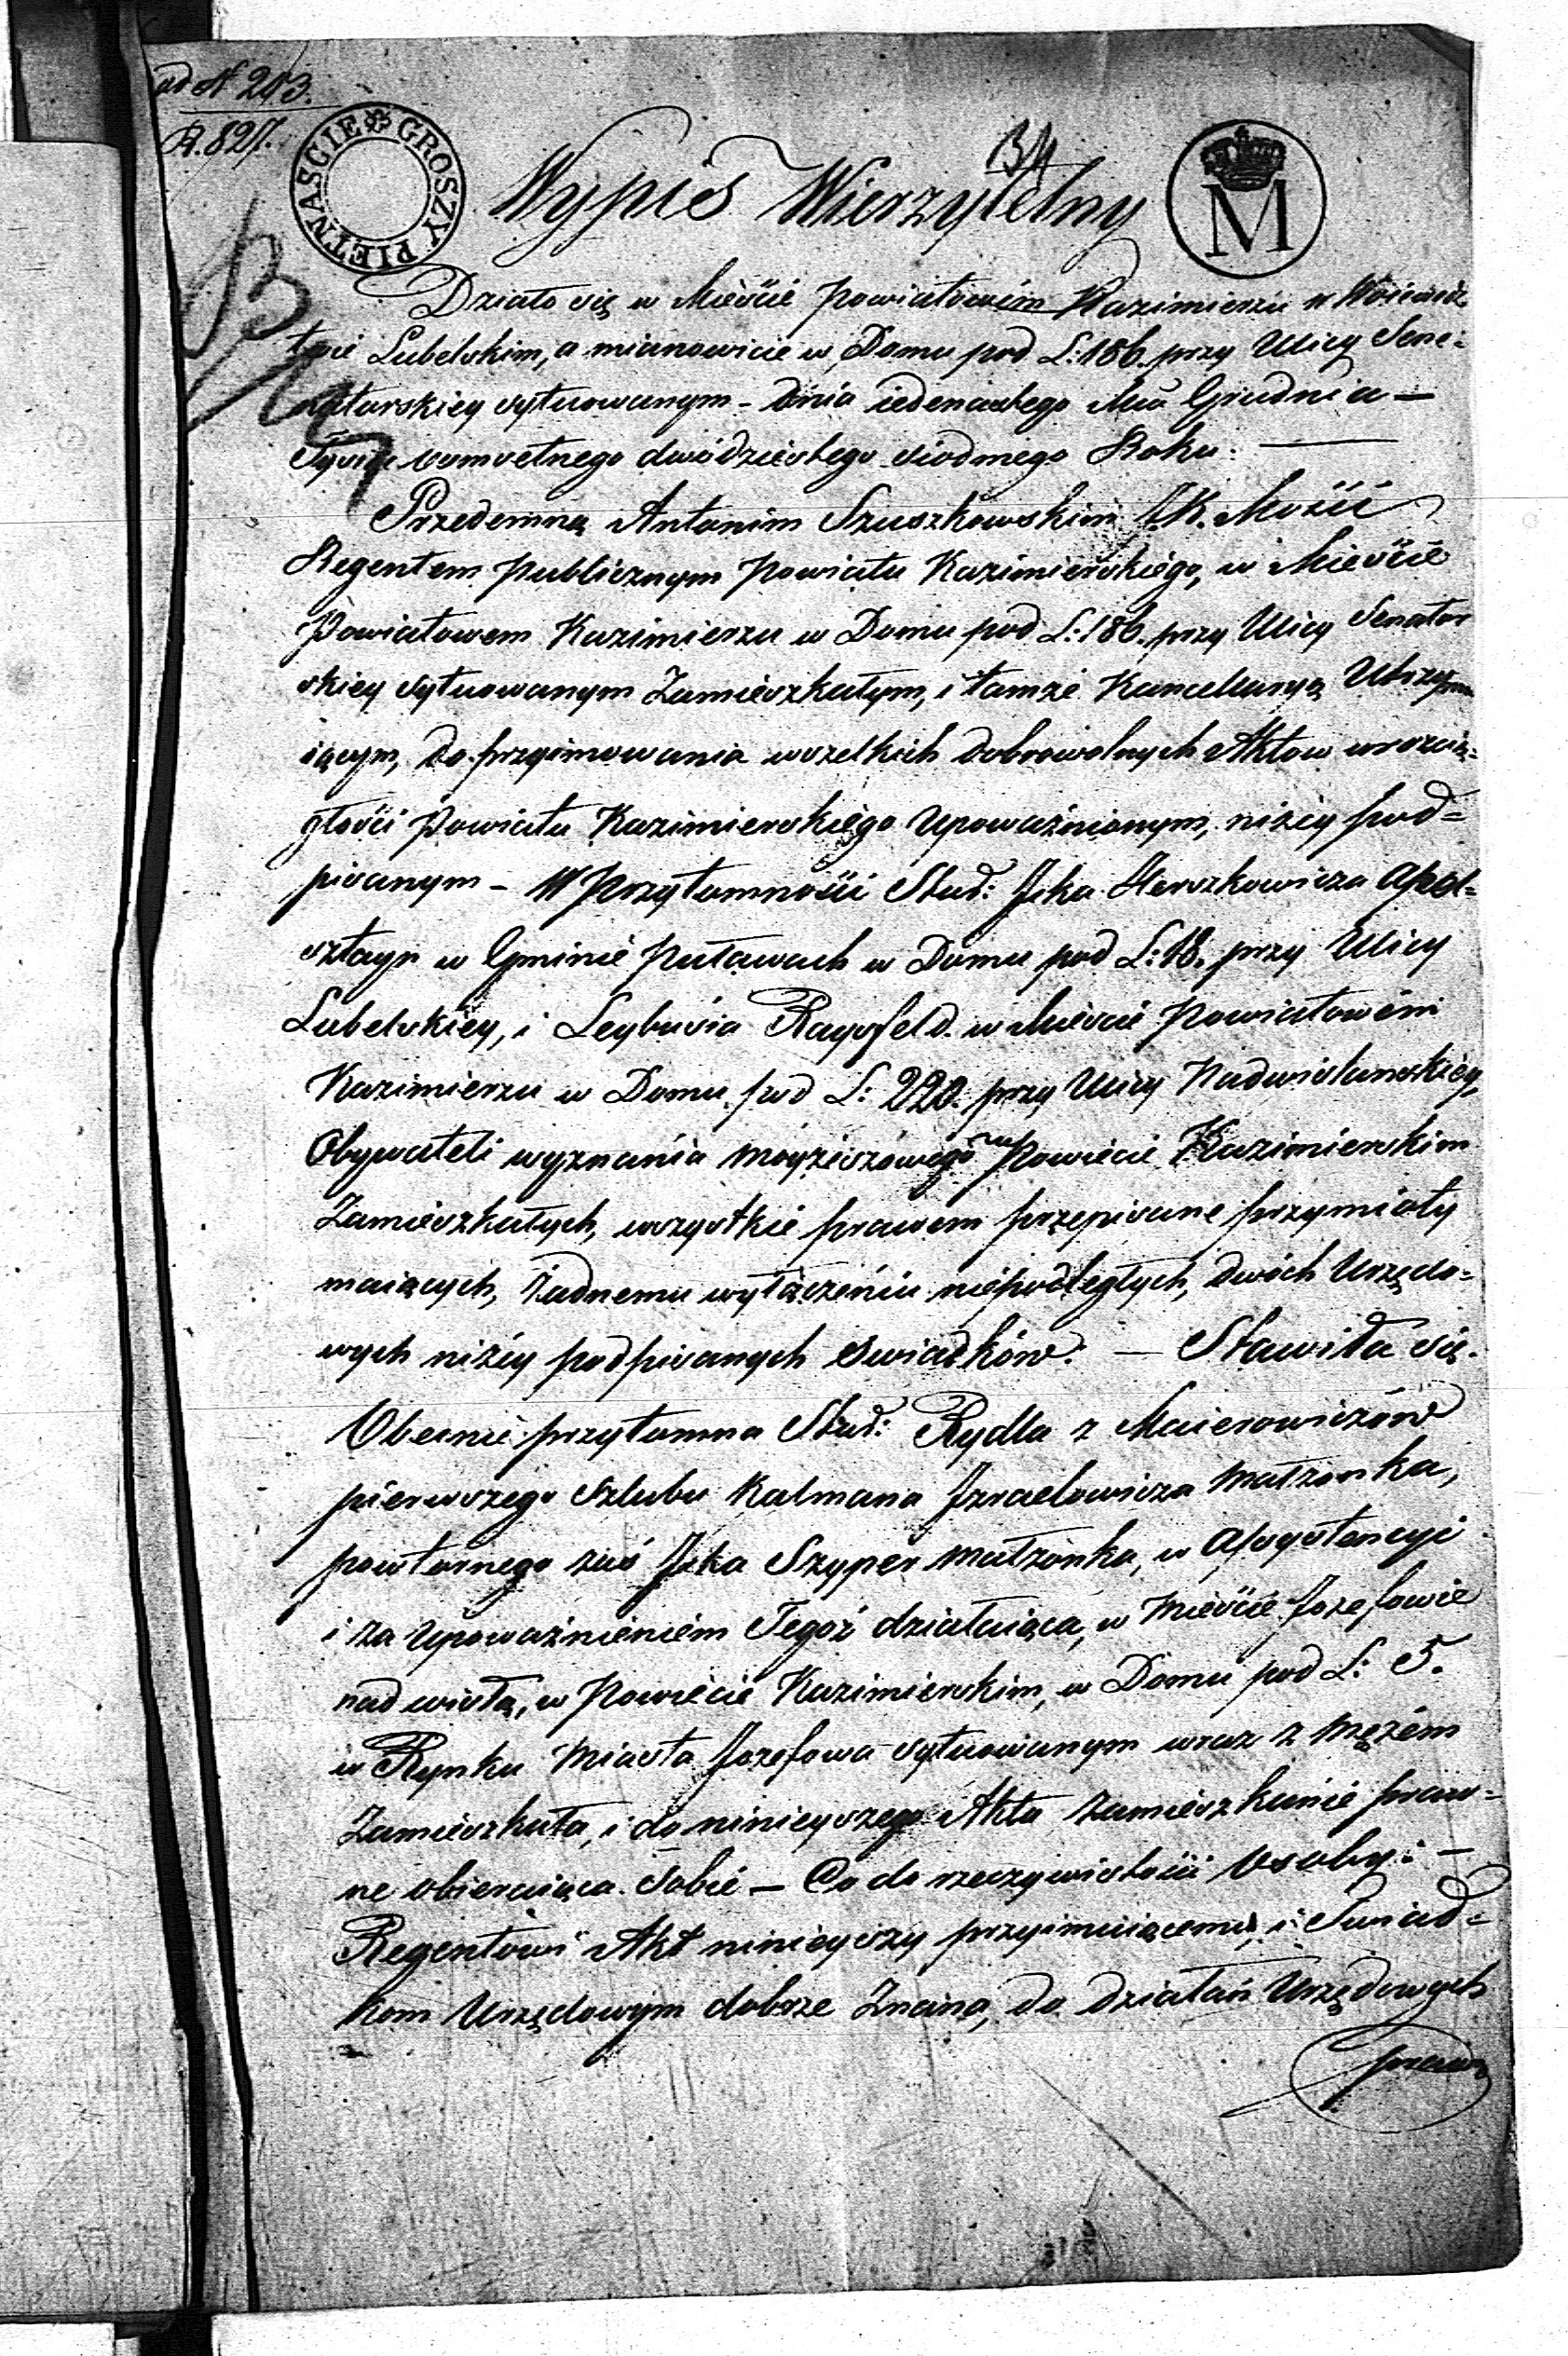 ad N 243.
R. 827.
PIETNAŚCIE GROSZY
M
Wypis Wierzytelny
Działo się w Mieście Powiatowém Kazimierzu w Woiewódz
twie Lubelskim, a mianowicie w Domu pod L: 186. przy Ulicy Sena-
atorskiey sytuowanym – dnia iedenastego Mca Grudnia —
Tysiąc osmsetnego dwódziestego siodmego Roku. —
Przedemną Antonim Szuszkowskim J.K. Mości
Regentem publicznym Powiatu Kazimierskiego, w Mieście
Powiatowem Kazimierzu w Domu pod L: 186. przy Ulicy Senator
skiey sytuowanym Zamieszkałym, i tamże Kancellaryą Utrzymu
iącym, do przyimowania wszelkich dobrowolnych Aktow w rozcią-
głości Powiatu Kazimierskiego Upoważnionym, niżéy pod=
pisanym – W Przytomności Staż: Icka Herszkowicza Apel-
sztayn w Gminie Puławach w Domu pod L: 18. przy Ulicy
Lubelskiey, i Leybusia Raysfeld. w Mieście Powiatowém
Kazimierzu w Domu pod L: 220. przy Ulicy Nadwislanskiey,
Obywateli wyznania moyżeszowego w Powiecie Kazimierskim
Zamieszkałych, wszystkie prawem przepisane przymioty
maiących, żadnemu wyłączeniu niepodległych, dwóch Urzędo-
wych niżéy podpisanych swiadków. — Stawiła się.
Obecnie przytomna Staż: Rydla z Maierowiczów
pierwszego szlubu Kalmana Izraelowicza małżonka,
powtornego zaś Icka Szyper małżonka, w Assystencyi
i za upoważnieniem Tegoż działaiąca, w Mieście Jozefowie
nad wisłą, w Powiecie Kazimierskim, w Domu pod L: 5.
w Rynku Miasta Jozefowa sytuowanym wraz z mężem
Zamieszkała, i do ninieyszego Aktu zamieszkanie praw-
ne obieraiąca sobie – Co do rzeczywistości Osoby: –
Regentowi Akt ninieyszy przyimuiącemu, i Swiad-
kom Urzędowym dobrze Znana, do działań Urzędowych